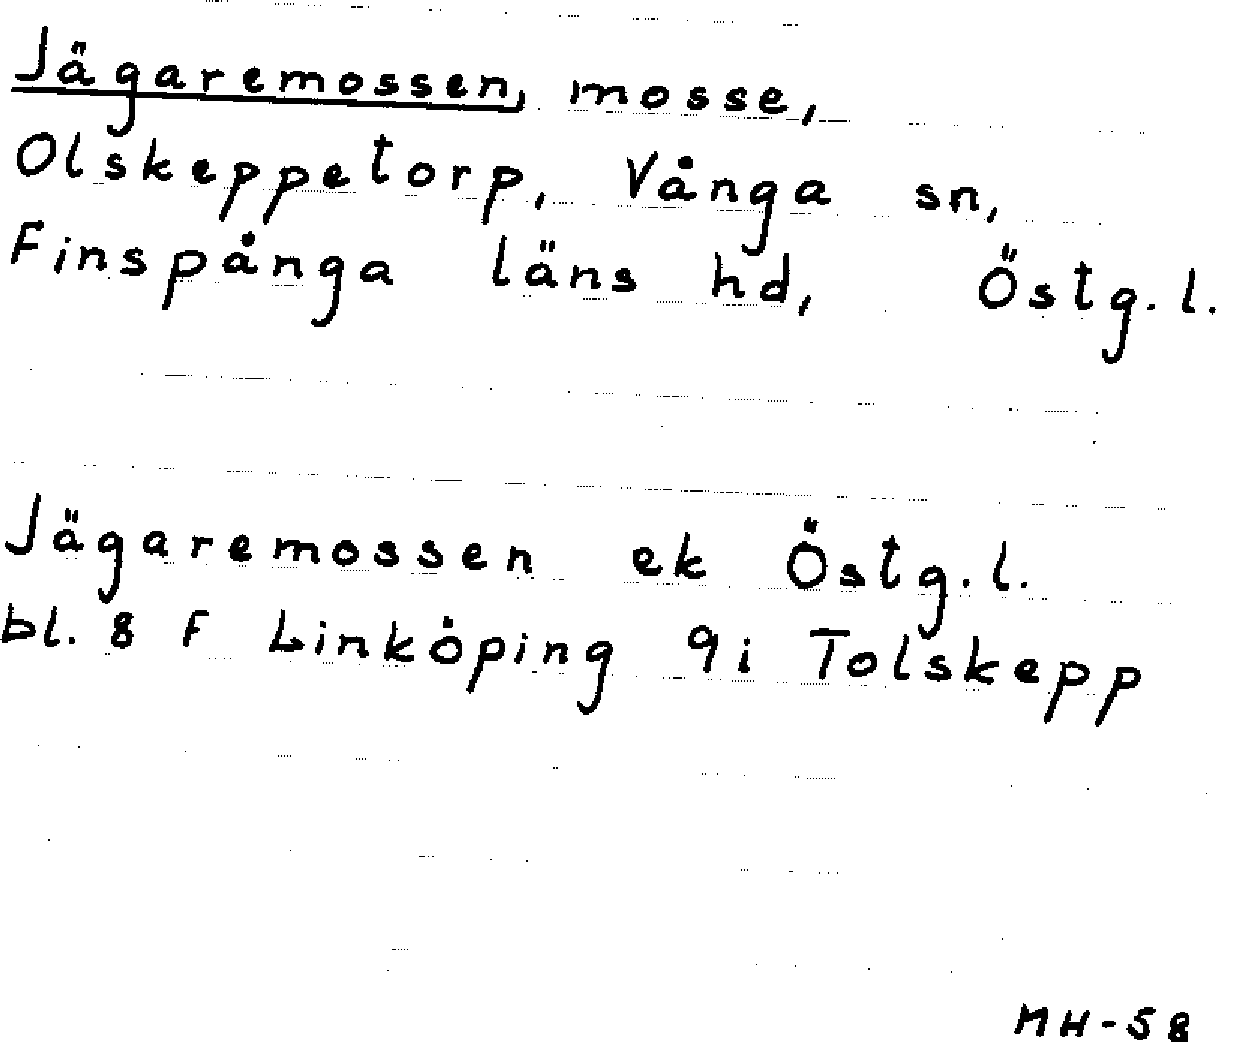 Jägaremossen, mosse,
Olskeppetorp, Vånga sn,
Finspånga läns hd, Östg.l.
Jägaremossen ek Östg.l.
bl. 8 F Linköping 9i Tolskepp
MH-58